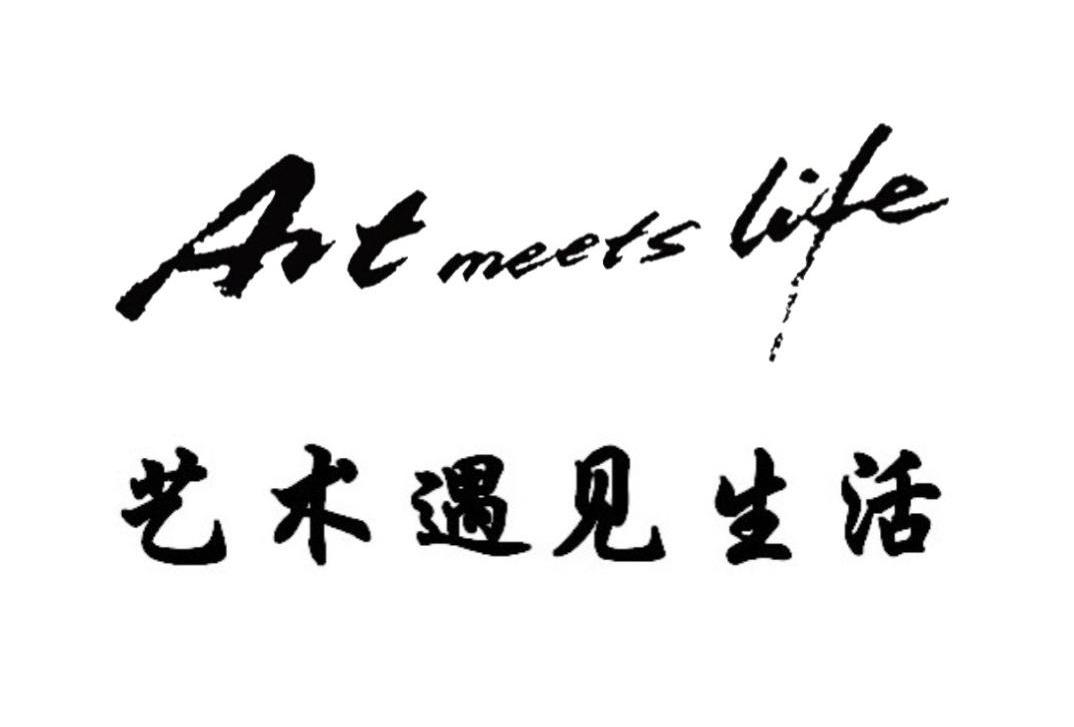 Art meets life
艺术遇见生活